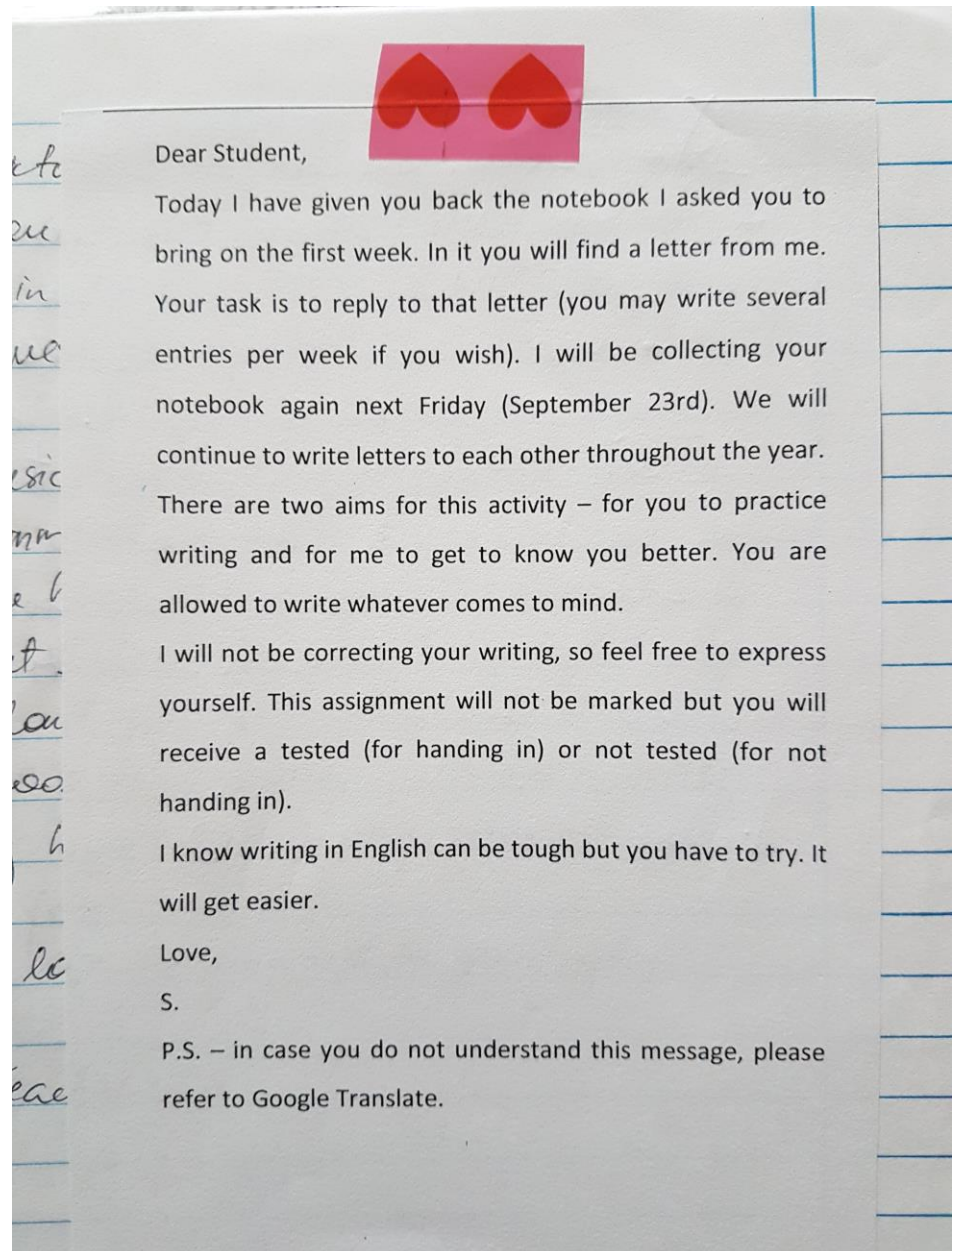 Dear Student,
Today I have given you back the notebook I asked you to
bring on the first week. In it you will find a letter from me.
Your task is to reply to that letter (you may write several
entries per week if you wish). I will be collecting your
notebook again next Friday (September 23rd). We will
continue to write letters to each other throughout the year.
There are two aims for this activity – for you to practice
writing and for me to get to know you better. You are
allowed to write whatever comes to mind.
I will not be correcting your writing, so feel free to express
yourself. This assignment will not be marked but you will
receive a tested (for handing in) or not tested (for not
handing in).
I know writing in English can be tough but you have to try. It
will get easier.
Love,
S.
P.S. – in case you do not understand this message, please
refer to Google Translate.